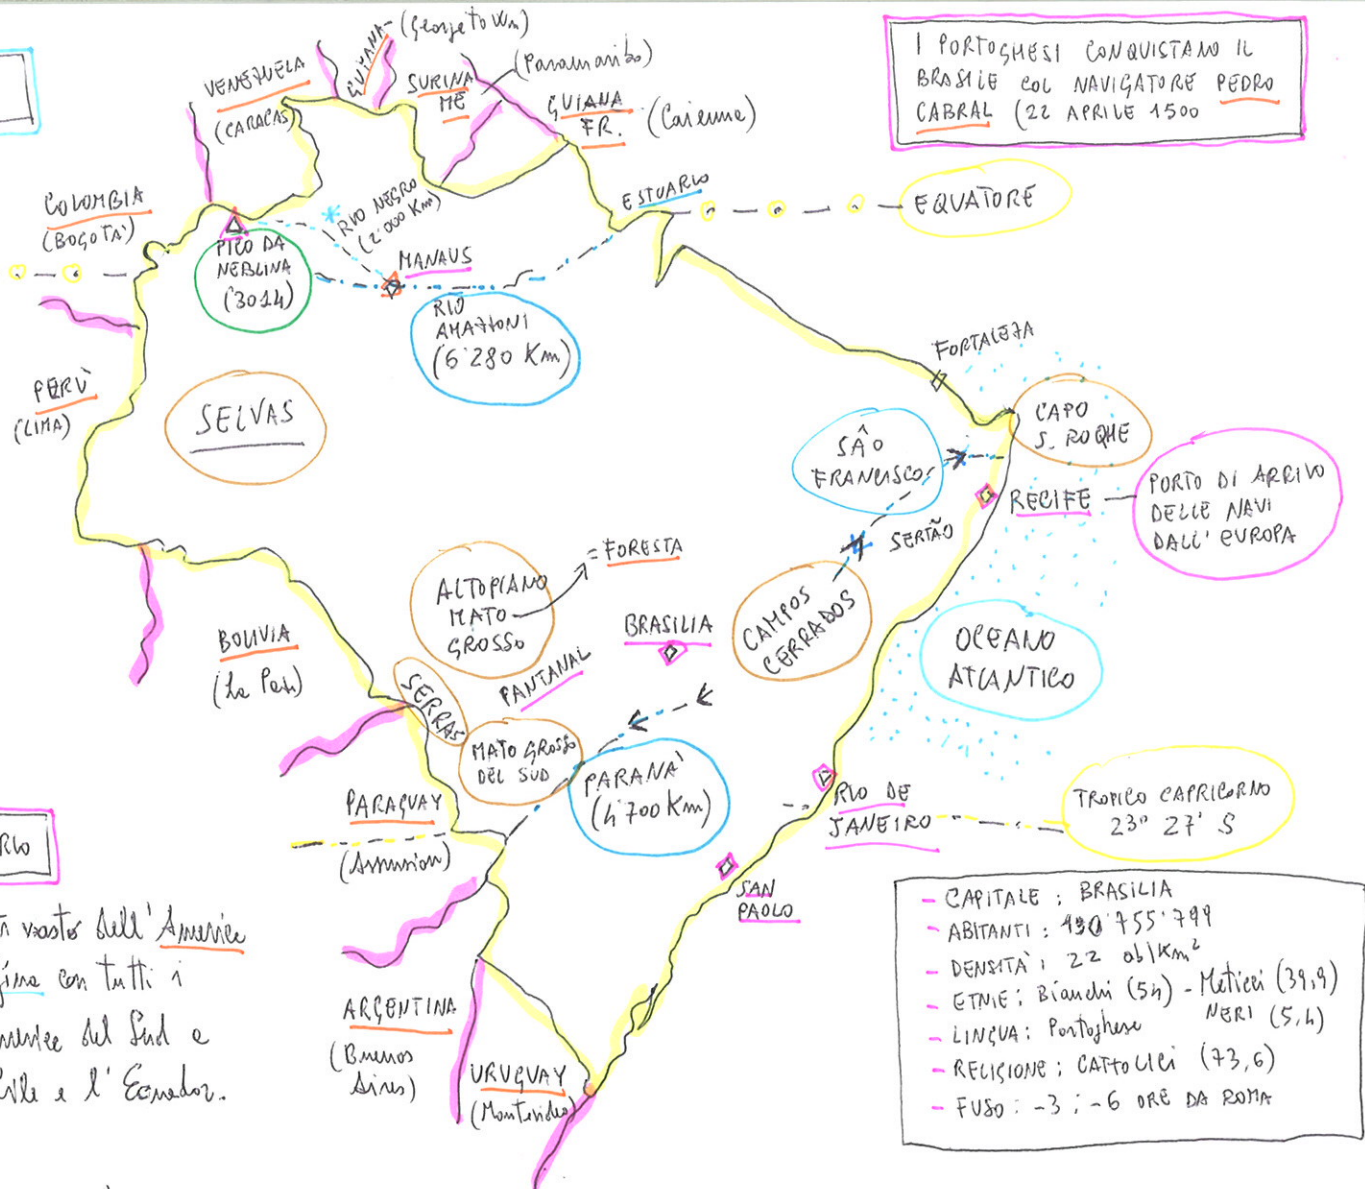 VENEZUELA
(CARACAS)
GUYANA
(Georgetown)
SURINA
ME
(Paramaribo)
GUIANA
FR.
(Caienna)
I PORTOGHESI CONQUISTANO IL
BRASILE COL NAVIGATORE PEDRO
CABRAL (22 APRILE 1500
COLOMBIA
(BOGOTA')
PICO DA
NEBLINA
(3014)
RIO NEGRO
(2'000 Km)
MANAUS
ESTUARIO
EQUATORE
RIO
AMAZZONI
(6'280 Km)
PERU'
(LIMA)
SELVAS
FORTALEZA
CAPO
S. ROQUE
SÂO
FRANCISCO
RECIFE
PORTO DI ARRIVO
DELLE NAVI
DALL'EUROPA
SERTÃO
ALTOPIANO
MATO
GROSSO
= FORESTA
CAMPOS
CERRADOS
BRASILIA
OCEANO
ATLANTICO
BOLIVIA
(La Paz)
SERRAS
PANTANAL
MATO GROSSO
DEL SUD
PARANA'
(4'700 Km)
PARAGUAY
(Assunsion)
RIO DE
JANEIRO
TROPICO CAPRICORNO
23° 27' S
SAN
PAOLO
vasto dell'America
con tutti i
del Sud e
e l'Ecuador.
ARGENTINA
(Buenos
Aires)
URUGUAY
(Montevideo)
- CAPITALE : BRASILIA
- ABITANTI : 190'755'799
- DENSITA' : 22 ab/Km²
- ETNIE : Bianchi (54) - Meticci (39,9)
NERI (5,4)
- LINGUA : Portoghese
- RELIGIONE : CATTOLICI (73,6)
- FUSO : -3 ; -6 ORE DA ROMA